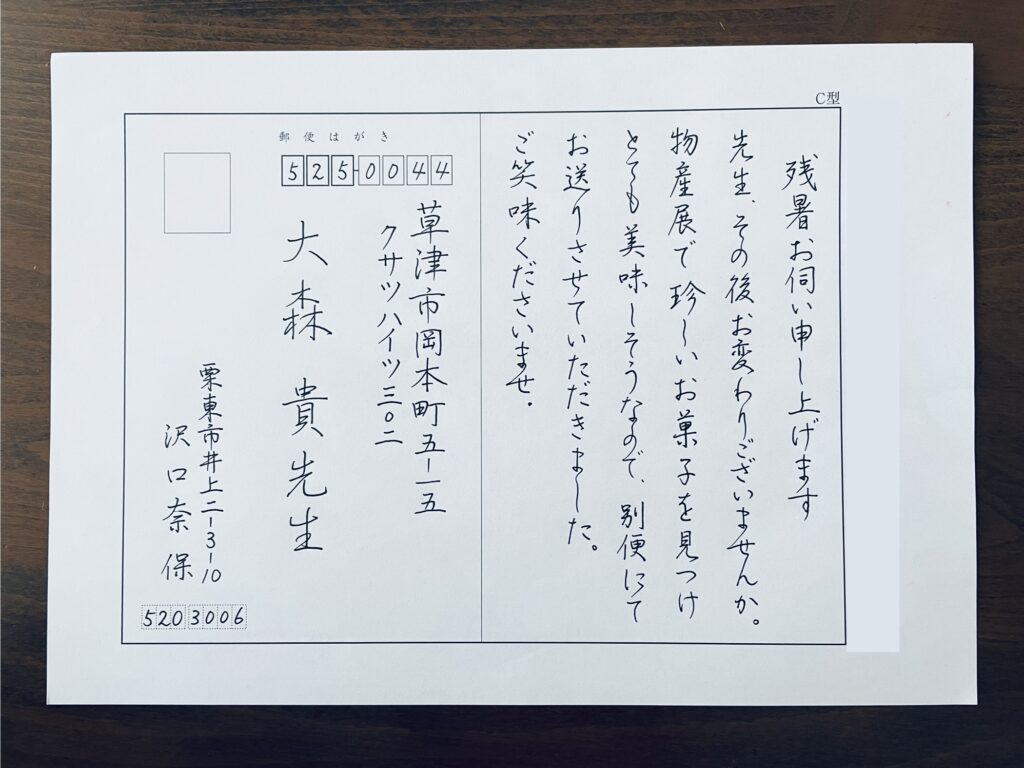 C型
残暑お伺い申し上げます
先生、その後お変わりございませんか。
物産展で珍しいお菓子を見つけ
とても美味しそうなので、別便にて
お送りさせていただきました。
ご笑味くださいませ。
郵便はがき
525-0044
草津市岡本町五-一五
クサツハイツ三〇二
大森貴先生
栗東市井上二-3-10
沢口奈保
5203006